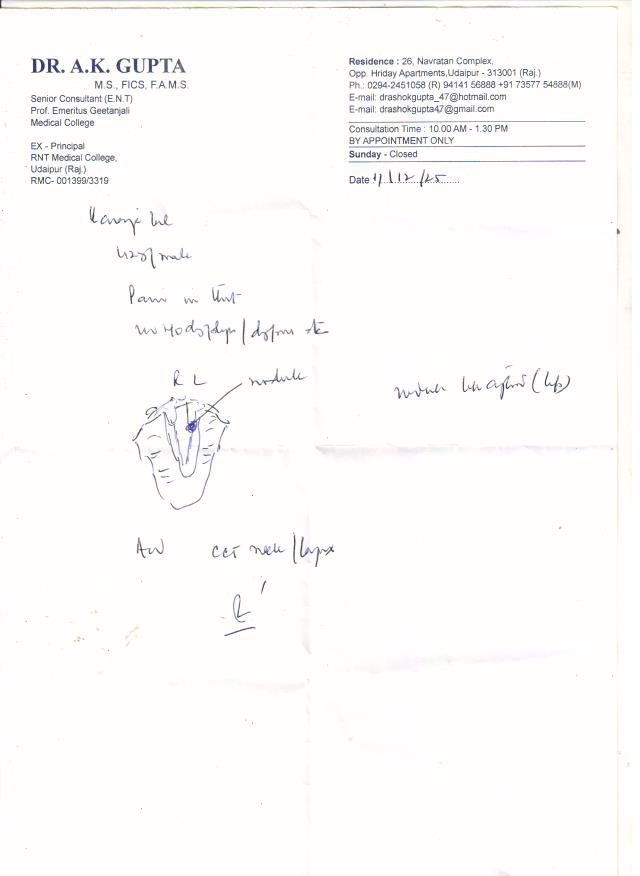 DR. A.K. GUPTA
M.S., FICS, F.A.M.S.
Senior Consultant (E.N.T)
Prof. Emeritus Geetanjali
Medical College
EX - Principal
RNT Medical College,
Udaipur (Raj.)
RMC- 001399/3319
Residence : 26, Navratan Complex,
Opp. Hriday Apartments,Udaipur - 313001 (Raj.)
Ph.: 0294-2451058 (R) 94141 56888 +91 73577 54888(M)
E-mail: drashokgupta_47@hotmail.com
E-mail: drashokgupta47@gmail.com
Consultation Time : 10.00 AM - 1.30 PM
BY APPOINTMENT ONLY
Sunday - Closed
Date 1/12/25
male
Pain in
R L
nodule
CCT neck/larynx